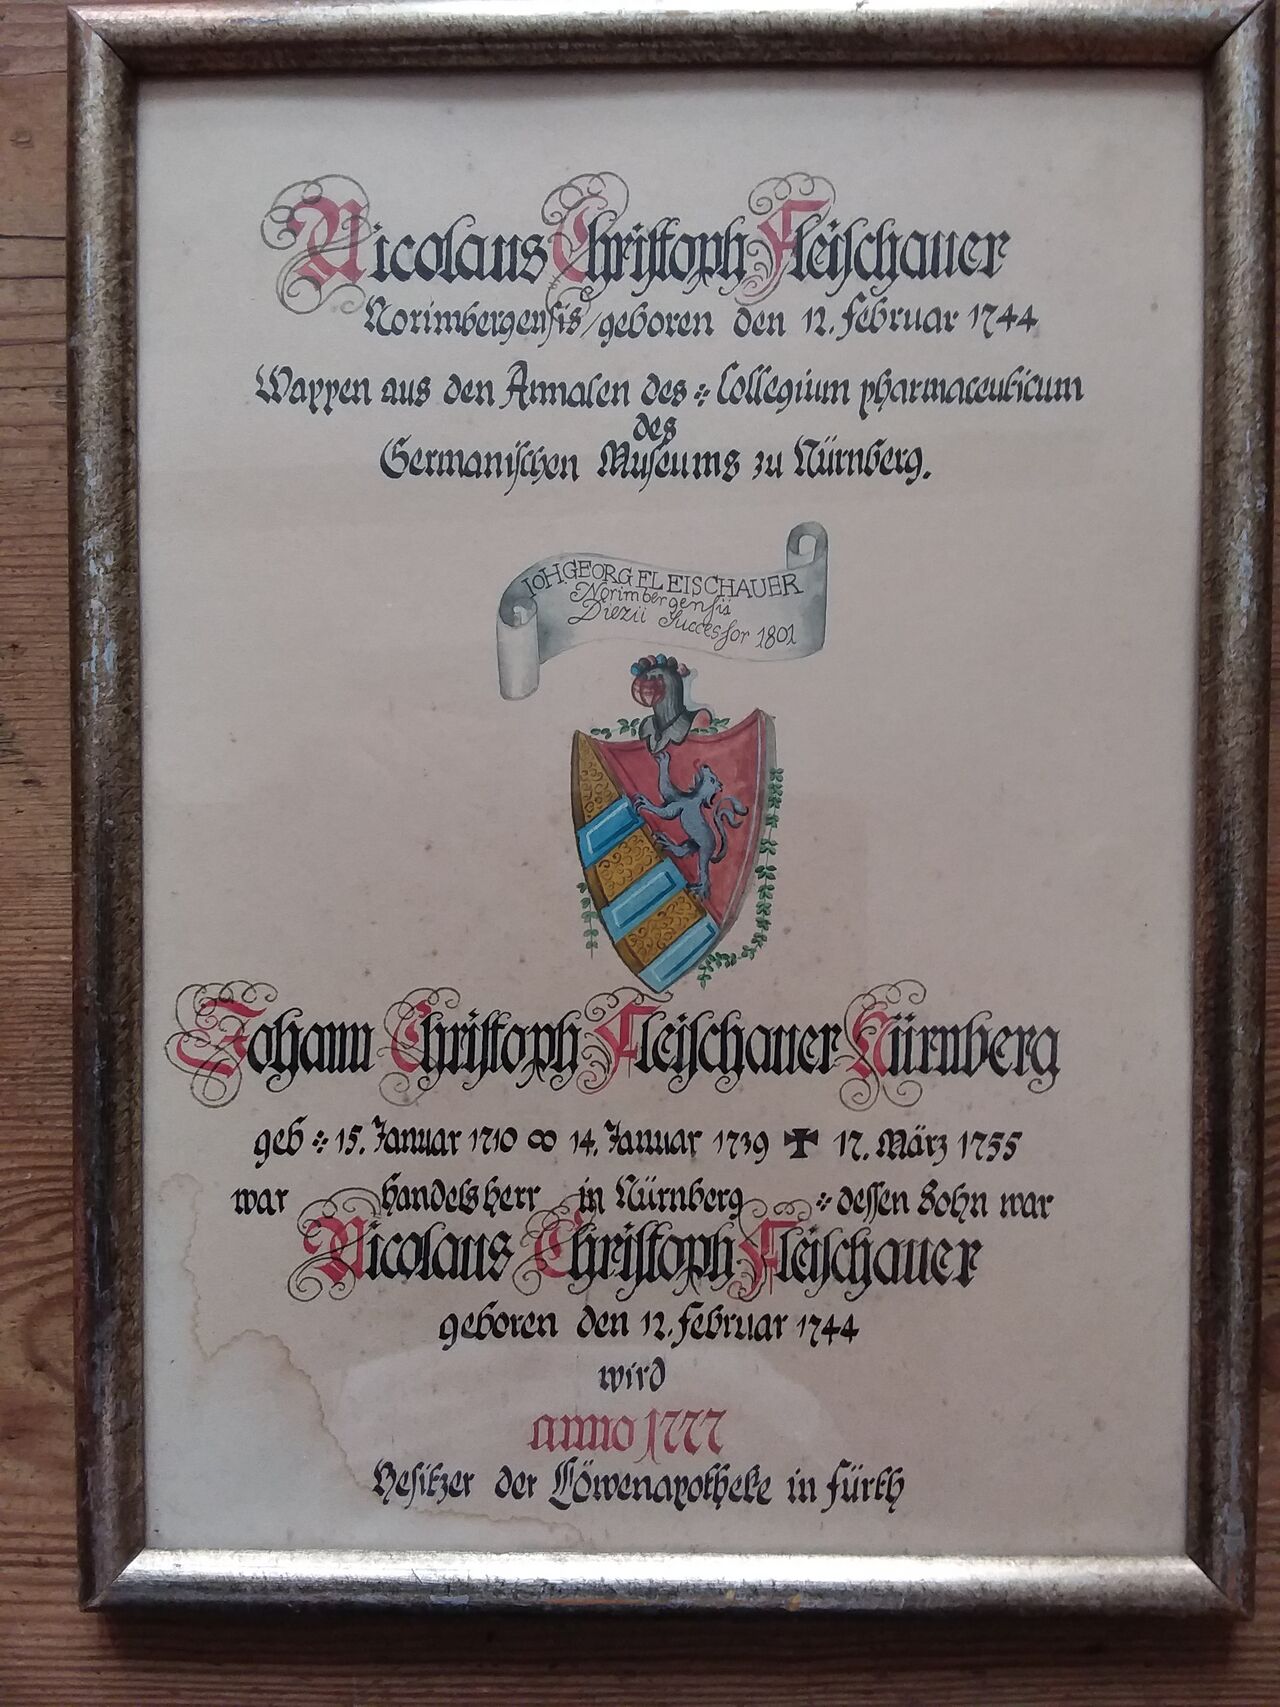 Nicolaus Christoph Fleischauer
Norimbergensis/geboren den 12. Februar 1744
Wappen aus den Annalen des : Collegium pharmaceuticum
des
Germanischen Museums zu Nürnberg.
JOH.GEORG FLEISCHAUER
Norimbergensis
Diezii Successor 1801
Johann Christoph Fleischauer Nürnberg
geb : 15. Januar 1710 ∞ 14. Januar 1739 ✠ 17. März 1755
war Handelsherr in Nürnberg : dessen Sohn war
Nicolaus Christoph Fleischauer
geboren den 12. Februar 1744
wird
anno 1777
Besitzer der Löwenapotheke in Fürth